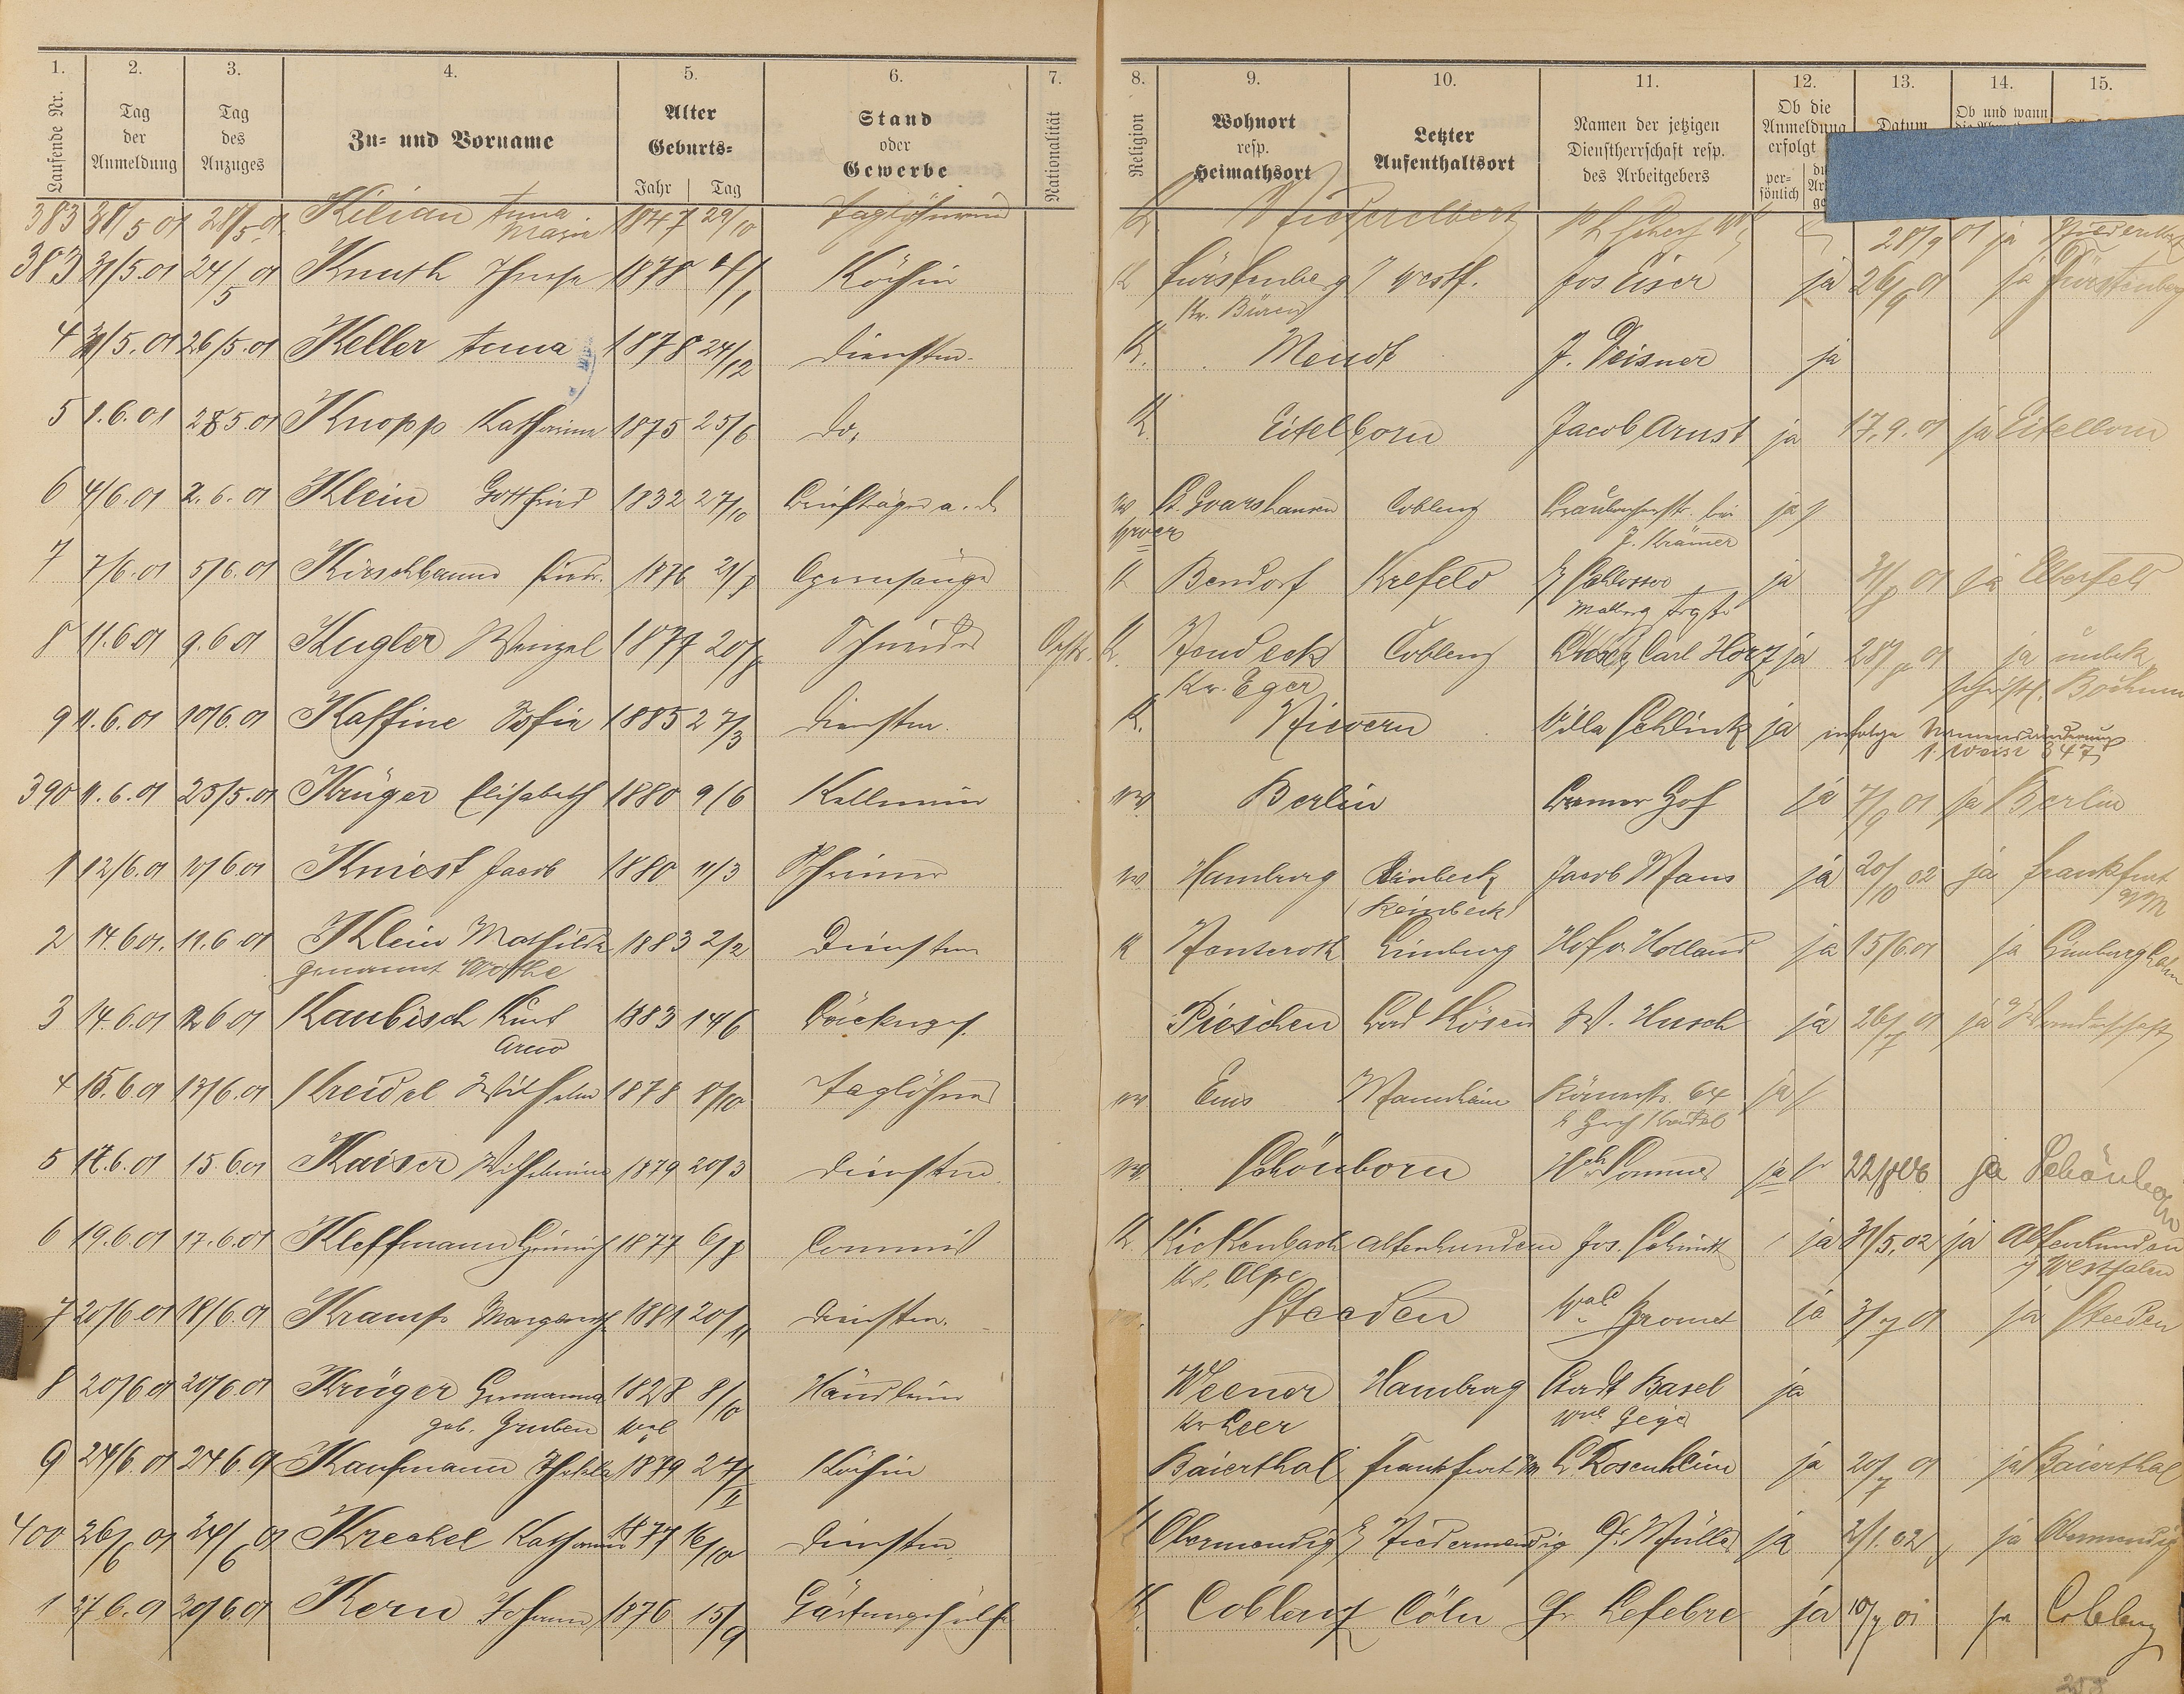 1. 2. 3. 4. 5. 6. 7. 8. 9. 10. 11. 12. 13. 14. 15.
Laufende Nr. Tag der Anmeldung Tag des Anzuges Zu- und Vorname Alter Geburts- Jahr Tag Stand oder Gewerbe Nationalität Religion Wohnort resp. Heimathsort Letzter Aufenthaltsort Namen der jetzigen Dienstherrschaft resp. des Arbeitgebers Ob die Anmeldung erfolgt per- sönlich Datum Ob und wann
383 28/5 01 28/5 01 Kilian Anna 1847 29/10 Taglöhnerin K Niederelbert 28/9 01 ja
Maria
383 31/5.01 24/5 01 Knuth Therese 1878 4/1 Köchin K Fürstenberg i/ Westf. Jos Eiser ja 26/9 01 ja Fürstenberg
Kr. Büren
4 31/5.01 26/5.01 Keller Anna 1878 24/12 Dienstm. K. Meudt J. Deisner ja
5 1.6.01 28.5.01 Knopp Katharina 1875 25/6 do. K. Eitelborn Jacob Arnst ja 17.9.01 ja Eitelborn
6 4/6.01 2.6.01 Klein Gottfried 1832 27/10 Briefträger a. d. ev St. Goarshausen Coblenz Braubacherstr. bei ja
J. Krämer
7 7/6.01 5/6.01 Kirschbaum 1876 21/8 Opernsänger K Bendorf Krefeld Schlosser ja 31/8 01 ja Elberfeld
Malberg
8 11.6.01 9.6.01 Kugler Wenzel 1877 20/8 Schneider Oestr. K. Neudeck Coblenz Carl Horz ja 28/ 01 ja unbek.
Kr. Eger schriftl. Bochum
9 11.6.01 10/6.01 Kaffine Sofie 1885 27/3 Dienstm. K. Nievern Villa Schlink ja infolge Namensänderung
s. Weise 347
390 11.6.01 25/5.01 Krüger Elisabeth 1880 9/6 Kellnerin ev. Berlin Bremer Hof ja 7/9 01 ja Berlin
1 12/6.01 10/6.01 Kniest Jacob 1880 11/3 Schreiner ev Hamburg Jacob Maus ja 20/10 02 ja Frankfurt
Reinbeck a/M
2 14.6.01. 11.6.01 Klein Mathilde 1883 2/2 Dienstm K Nenteroth Limburg Hof v. Holland ja 15/6.01 ja Limburg Lahn
genannt Wothe
3 14.6.01 12 6 01 Kaubisch Kurt 1883 14/6 Bäckerges. Pieschen Bad Kösen W. Husch ja 26/7 01 ja a/ Wanderschaft
Arno
4 15.6.01 13/6.01 Kreidel Wilhelm 1878 8/10 Taglöhner ev Ems Mannheim Römerstr. 64 ja
5 17.6.01 15.6.01 Kaiser Wilhelmine 1879 20/3 Dienstm. ev. Schönborn Hch Sommer ja 22/8 06 ja Schönborn
6 19.6.01 17.6.01 Kleffmann Heinrich 1877 6/8 Commis K Kickenbach Altenhundem Jos. Schmidt ja 31/5.02 ja Altenhundem
Kr. Olpe i/ Westfalen
7 20/6.01 18/6.01 Kramp Margareth 1881 20/11 Dienstm. Steeden Wwe Gromet ja 3/7 01 ja Steeden
8 20/6 01 20/6.01 Krüger Hermanna 1828 8/10 Händlerin Weener Hamburg Stadt Basel ja
geb. Gruben Kr Leer
9 24/6.01 24.6.01 Kaufmann Thekla 1879 27/2 Köchin Baierthal Frankfurt a/M L Rosenheim ja 20/7 01 ja Baierthal
400 26/6 01 24/6 01 Krechel Katharina 1877 16/10 Dienstm. K Obermendig Niedermendig Dr. Müller ja 2/1.02 ja Obermendig
1 27 6.01 20/6 01 Kern Johann 1876 15/9 Gärtnergehülfe K Coblenz Cöln Gr Lefebre ja 10/7 01 ja Coblenz